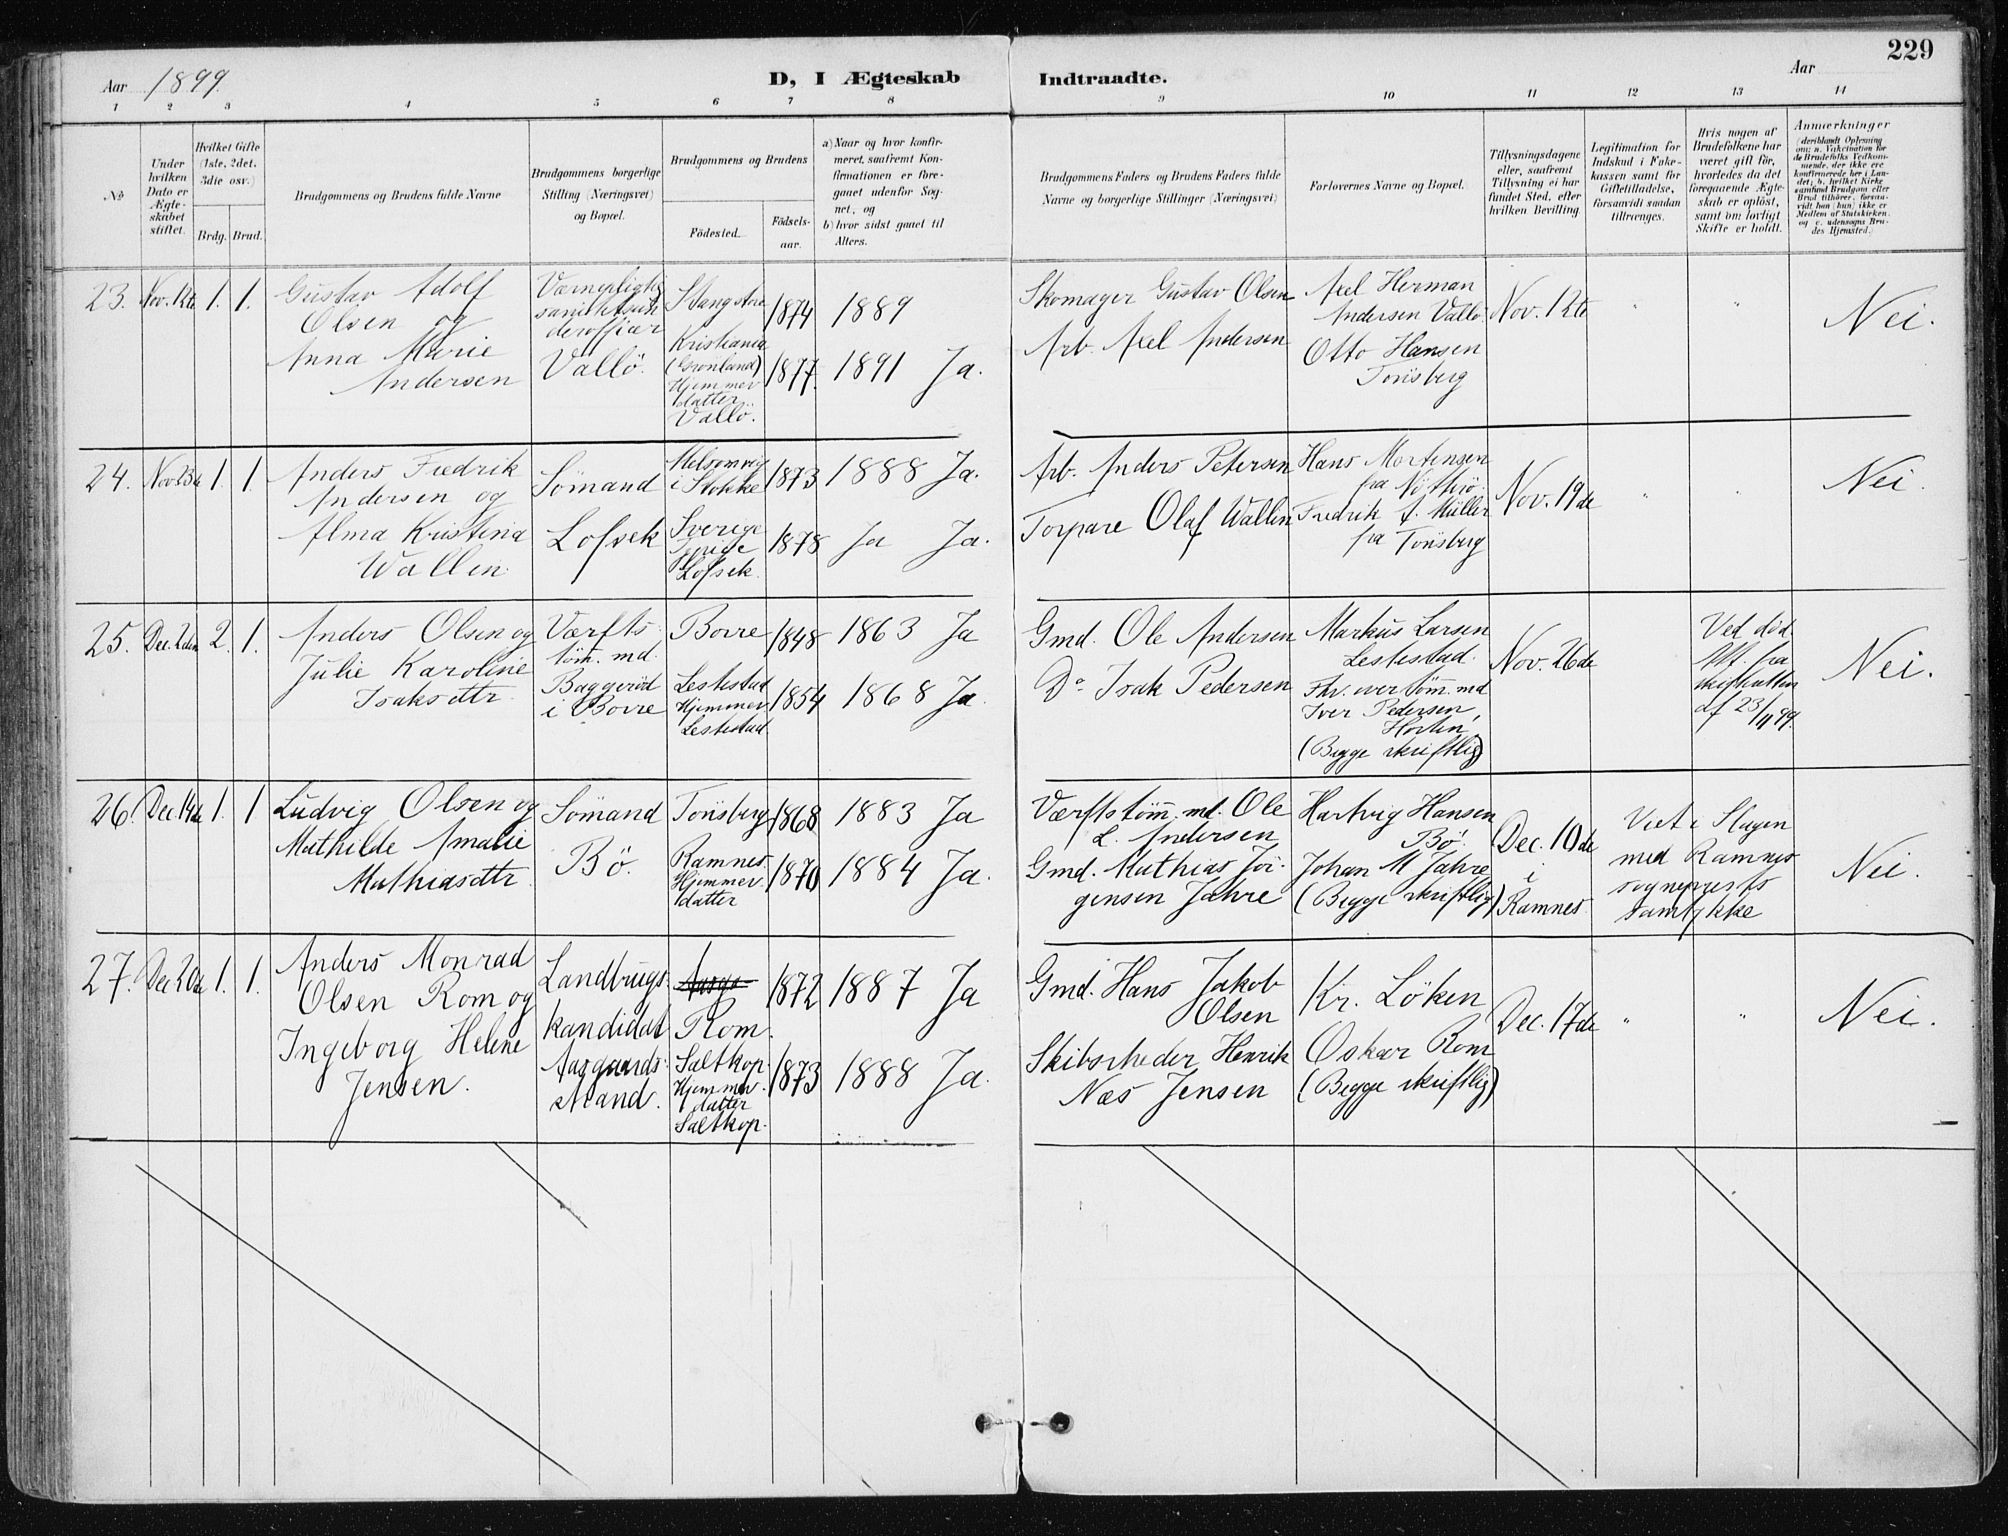 229
Aar 1899.
D, I Ægteskab Indtraadte.
Aar
1 2 3 4 5 6 7 8 9 10 11 12 13 14
No
Under hvilken Dato er Ægteskabet stiftet.
Hvilket Gifte (1ste, 2det, 3die osv.)
Brdg. Brud.
Brudgommens og Brudens fulde Navne
Brudgommens borgerlige Stilling (Næringsvei) og Bopæl.
Brudgommens og Brudens
Födested.
Födselsaar.
a) Naar og hvor konfirmeret, saafremt Konfirmationen er foregaaet udenfor Sognet, og
b) hvor sidst gaaet til Alters.
Brudgommens Faders og Brudens Faders fulde Navne og borgerlige Stillinger (Næringsvei)
Forlovernes Navne og Bopæl.
Tillysningsdagene eller, saafremt Tillysning ei har fundet Sted, efter hvilken Bevilling.
Legitimation for Indskud i Enkekassen samt for Giftetilladelse, forsaavidt saadan tiltrænges.
Hvis nogen af Brudefolkene har været gift för, hvorledes da det foregaaende Ægteskab er oplöst, samt om lovligt Skifte er holdt.
Anmærkninger (deriblandt Oplysning om: a. Vakcination for de Brudefolks Vedkommende, der ikke ere konfirmerede her i Landet; b. hvilket Kirkesamfund Brudgom eller Brud tilhörer, forsaavidt han (hun) ikke er Medlem af Statskirken, og c. udensogns Brudes Hjemsted.)
23. Nov. 12te 1. 1.
Gustav Adolf
Olsen og
Anna Marie
Andersen
Værnepligtig
sanitetsun
derofficer
Vallö.
Stang store
Kristiania
(Grönland)
Hjemmev.
datter
Vallö.
1874 1889
1877. 1891 Ja.
Skomager Gustav Olsen
Arb. Axel Andersen
Axel Herman
Andersen Vallö
Otto Hansen
Tönsberg
Nov. 12te
" "
Nei.
24. Nov. 23de 1. 1.
Anders Fredrik
Andersen og
Alma Kristina
Wallen.
Sömand
Lofsek
Melsomvig
i Stokke
Sverige
Lofsek.
1873 1888 Ja.
1878 Ja Ja.
Arb. Anders Petersen
Torpare Olaf Wallin
Hans Mortensen
fra Nötterö.
Fredrik A. Müller
fra Tönsberg
Nov. 19de
" "
Nei.
25. Dec. 2den 2. 1.
Anders Olsen og
Julie Karoline
Isaksdtr.
Værfts
töm. md.
Baggeröd
i Borre
Borre
Lestestad
Hjemmev.
Lestestad.
1848 1863 Ja
1854 1868 Ja.
Gmd. Ole Andersen
Do Isak Pedersen
Markus Larsen
Lestestad.
Fhv. overtöm. md
Iver Pedersen,
Horten,
(Begge skriftlig)
Nov. 26de
Ved död.
Att. fra
skifteretten
af 23/11 99.
Nei.
26. Dec. 14de 1. 1
Ludvig Olsen og
Mathilde Amalie
Mathiasdtr.
Sömand
Bö.
Tönsberg
Ramnes
Hjemmev.
datter
1868 1883 Ja
1870 1884 Ja.
Værftstöm. md. Ole
L. Andersen
Gmd. Mathias Jör-
gensen Jahre
Hartvig Hansen
Bö.
Johan M Jahre
(Begge skriftlig)
Dec. 10de
i
Ramnes.
Viet i Slagen
med Ramnes
sogneprests
samtykke
Nei.
27. Dec 20de 1. 1.
Anders Monrad
Olsen Rom og
Ingeborg Helene
Jensen.
Landbrugs-
kandidat
Aasgaards-
strand.
Rom.
Saltkop.
Hjemmev.
datter
Saltkop.
1872 1887 Ja
1873 1888 Ja.
Gmd. Hans Jakob
Olsen
Skibsrheder Henrik
Næs Jensen
Kr. Löken
Oskar Rom
(Begge skriftlig)
Dec. 17de
" "
Nei.